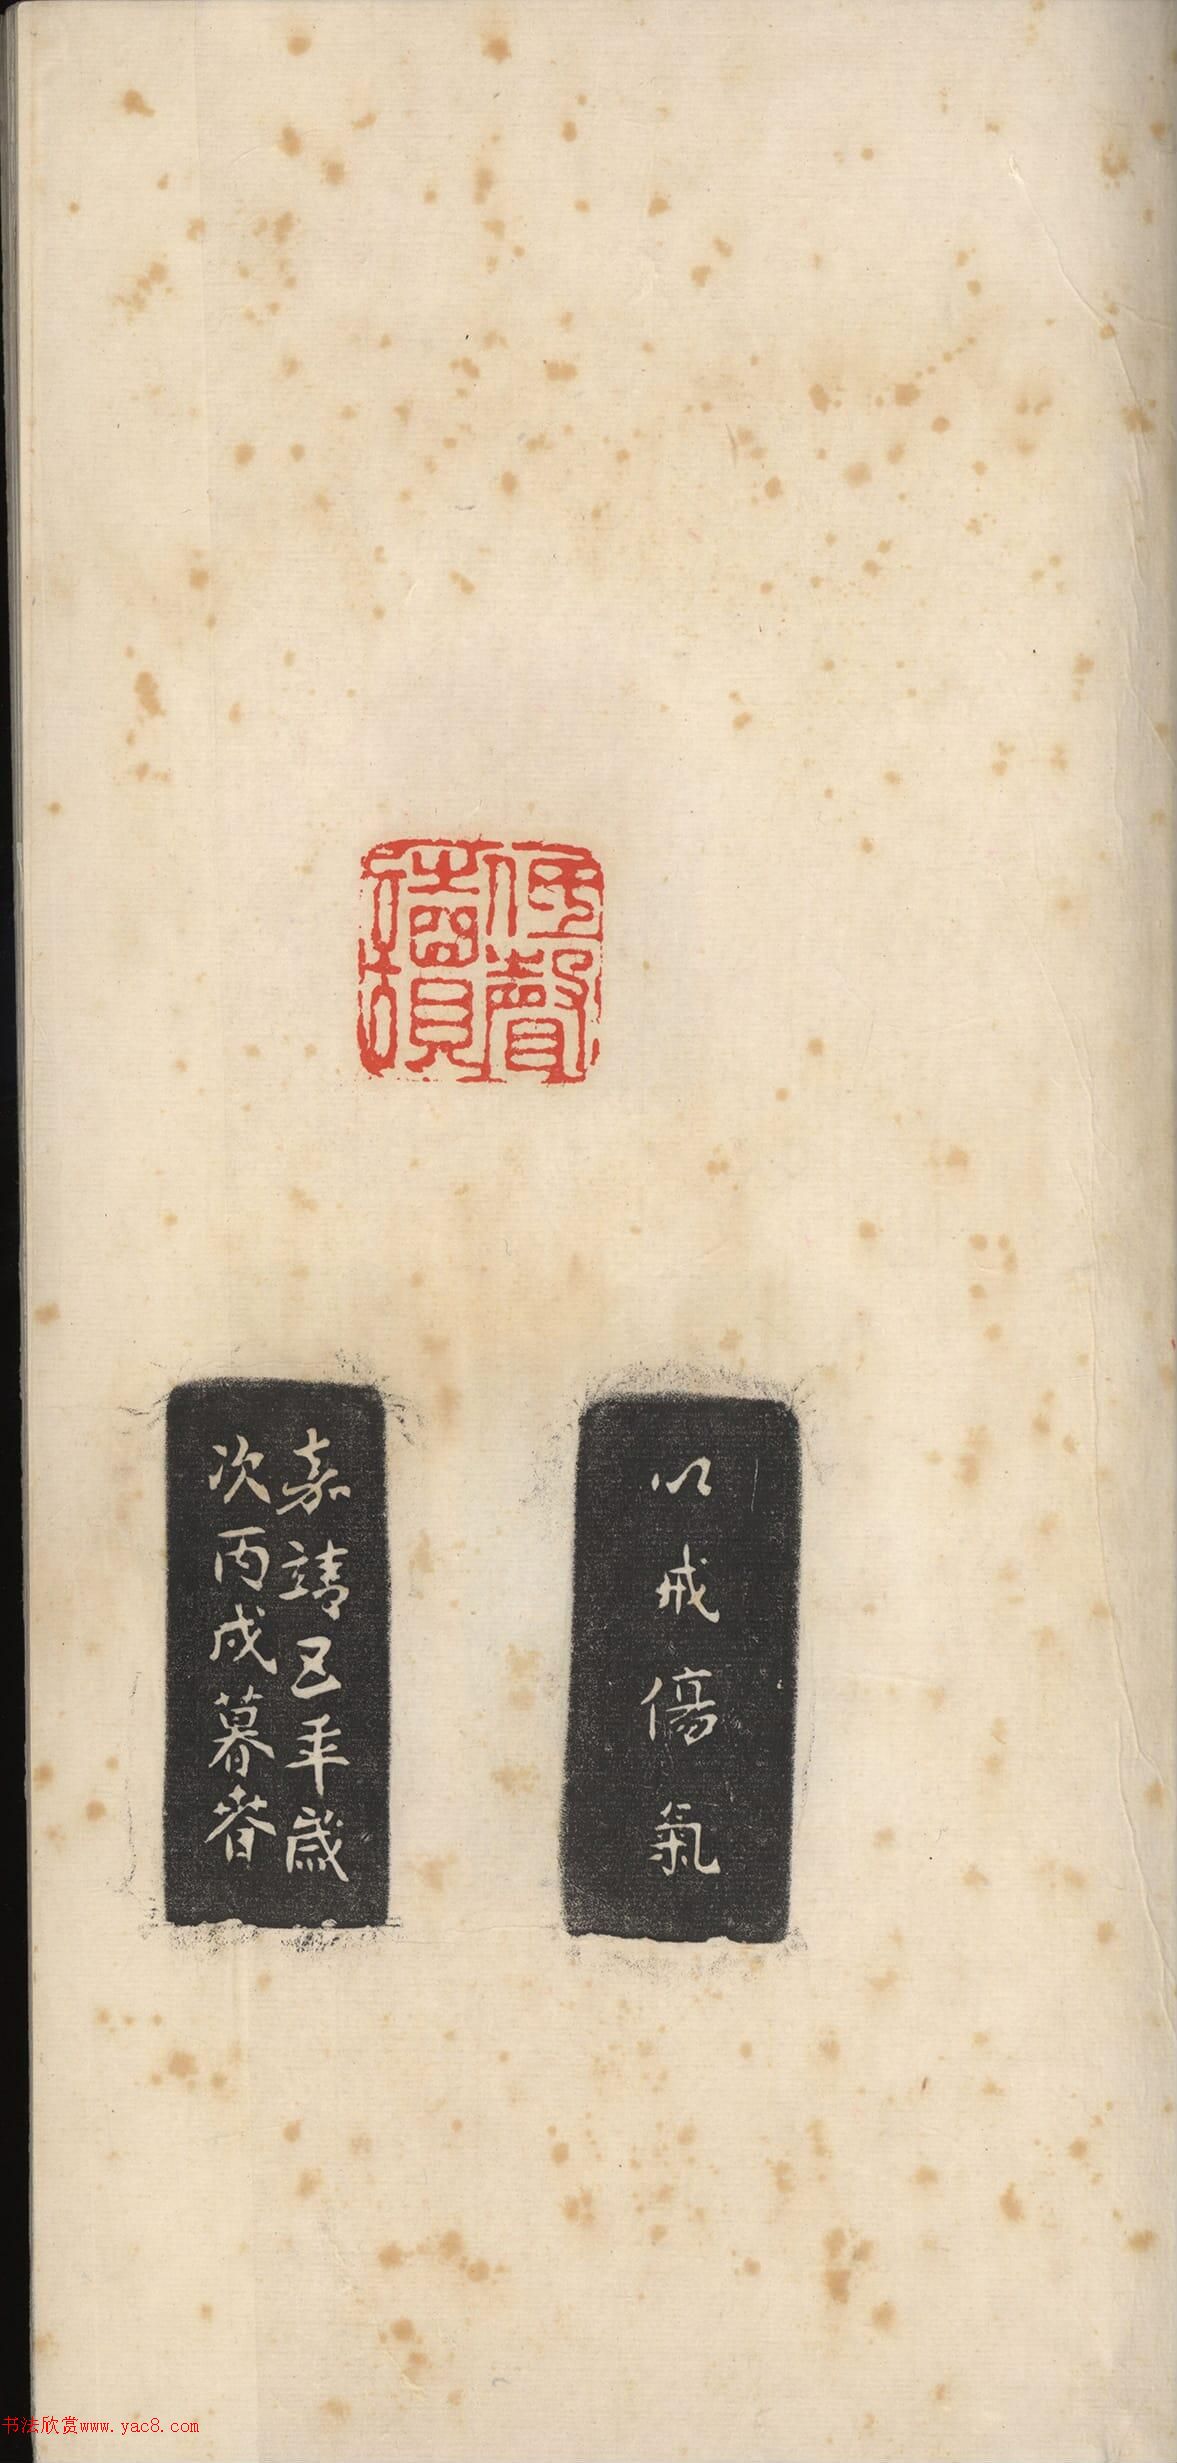 以戒傷氣
嘉靖五年歲
次丙戌暮春
书法欣赏www.yac8.com